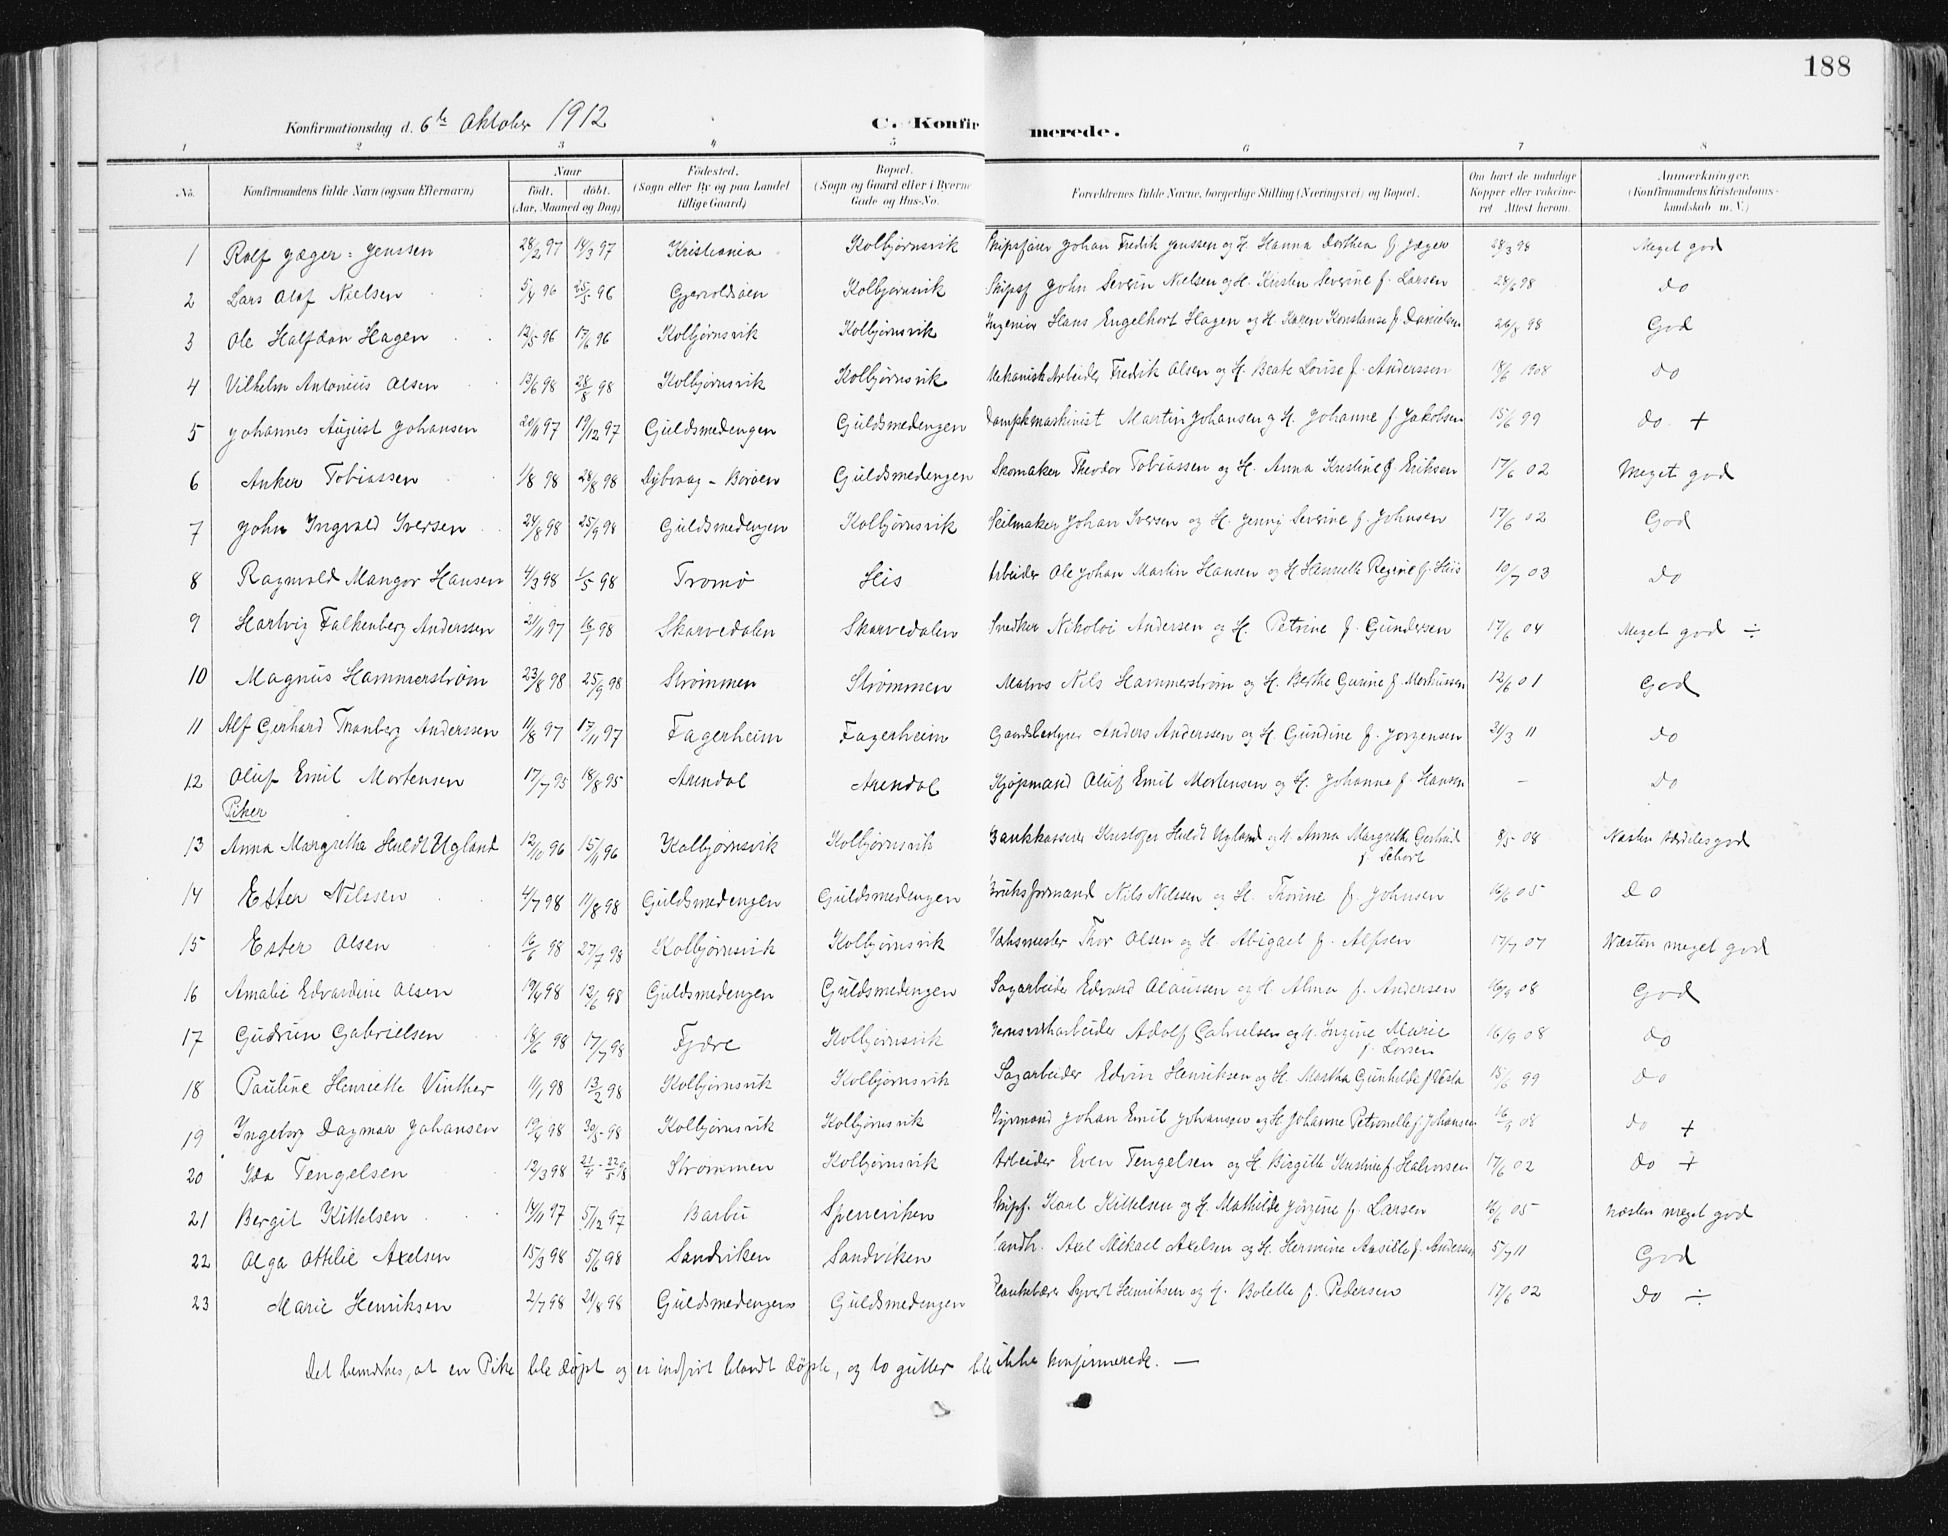 188
Konfirmationsdag d. 6te Oktober 1912 C. Konfirmerede.
1 2 3 4 5 6 7 8
No. Konfirmandens fulde Navn (ogsaa Efternavn) Naar født. døbt. (Aar, Maaned og Dag) Fødested. (Sogn eller By og paa Landet tillige Gaard) Bopæl. (Sogn og Gaard eller i Byerne Gade og Hus-No. Forældrenes fulde Navne, borgerlige Stilling (Næringsvei) og Bopæl. Om havt de naturlige Kopper eller vaccineret. Attest herom. Anmærkninger. (Konfirmandens Kristendomskundskab m. V.)
1 Rolf Jæger-Jenssen 28/2 97 14/3 97 Kristiania Kolbjørnsvik Skipsfører Johan Fredrik Jenssen og H. Hanna Dorthea f. Jæger 28/3 98 Meget god
2 Lars Olaf Nielsen 5/4 96 25/5 96 Gjervoldsøen Kolbjørnsvik Skipsf John Severin Nielsen og H. Kirsten Severine f. Larsen 24/6 98 Do
3 Ole Halfdan Hagen 12/5 96 17/6 96 Kolbjørnsvik Kolbjørnsvik Ingeniør Hans Engelhart Hagen og H. Karen Konstanse f. Danielsen 26/8 98 God
4 Vilhelm Antonius Olsen 13/6 98 28/8 98 Kolbjørnsvik Kolbjørnsvik Mekanisk Arbeider Fredrik Olsen og H. Beate Louise f. Anderssen 18/6 1908 Do
5 Johannes August Johansen 20/11 97 19/12 97 Guldsmedengen Guldsmedengen Dampskmaskinist Martin Johansen og H. Johanne f. Jakobsen 15/6 99 Do +
6 Anker Tobiassen 1/8 98 28/8 98 Dybvaag - Borøen Guldsmedengen Skomaker Theodor Tobiassen og H. Anna Kristine f. Eriksen 17/6 02 Meget god
7 John Ingvald Iversen 24/8 98 25/9 98 Guldsmedengen Kolbjørnsvik Seilmaker Johan Iversen og H. Jenny Severine f. Johnsen 17/6 02 God
8 Ragnvald Mangor Hansen 4/3 98 1/5 98 Tromø His Arbeider Ole Johan Martin Hansen og H Henriette Regine f. Hiis 10/7 03 Do
9 Hartvig Falkenberg Anderssen 21/11 97 16/1 98 Skarvedalen Skarvedalen Snedker Nikolai Andersen og H. Petrine f. Gundersen 17/6 04 Meget god ÷
10 Magnus Hammerstrøm 23/8 98 25/9 98 Strømmen Strømmen Matros Nils Hammerstrøm og H. Berthe Gurine f. Markussen 12/6 01 God
11 Alf Gerhard Tranberg Anderssen 11/8 97 17/11 97 Fagerheim Fagerheim Gaardsbestyrer Anders Anderssen og H. Gundine f. Jørgensen 31/3 11 Do
12 Oluf Emil Mortensen 17/7 95 18/8 95 Arendal Arendal Kjøpmand Oluf Emil Mortensen og H. Johanne f. Hansen — Do
Piker
13 Anna Margretha Huldt Ugland 12/10 96 15/11 96 Kolbjørnsvik Kolbjørnsvik Bankkasserer Kristofer Huldt Ugland og H. Anna Margrethe Gertrud f. 8/5 08 Næsten særdeles god
14 Ester Nilssen 4/7 98 11/8 98 Guldsmedengen Guldsmedengen Bruksformand Nils Nilssen og H. Thorine f. Johnsen 16/6 05 Do
15 Ester Olsen 16/6 98 27/7 98 Kolbjørnsvik Kolbjørnsvik Thor Olsen og H. Abigael f. Alfsen 17/7 07 Næsten meget god
16 Amalie Edvardine Olsen 19/4 98 12/6 98 Guldsmedengen Guldsmedengen Sagarbeider Edvard Olaussen og H Alma f. Andersen 16/9 08 God
17 Gudrun Gabrielsen 18/6 98 17/7 98 Fjære Kolbjørnsvik Adolf Gabrielsen og H. Ingine Marie f. Larsen 16/9 08 Do
18 Pauline Henriette Vinther 11/1 98 13/2 98 Kolbjørnsvik Kolbjørnsvik Sagarbeider Edvin Henriksen og H. Martha Gunhilde f Vesta 15/6 99 Do
19 Ingeborg Dagmar Johansen 19/4 98 30/5 98 Kolbjørnsvik Kolbjørnsvik Styrmand Johan Emil Johansen og H Johanne Petronelle f. Johansen 16/9 08 Do +
20 Ida Tengelsen 12/3 98 21/4 - 22/5 98 Strømmen Kolbjørnsvik Arbeider Even Tengelsen og H Birgitte Kristine f. Halvorsen 17/6 02 Do +
21 Bergit Kittelsen 14/11 97 5/12 97 Barbu Sperreviken Skipsf. Karl Kittelsen og H. Mathilde Jørgine f. Larsen 16/6 05 næsten meget god
22 Olga Otthilie Axelsen 15/3 98 5/6 98 Sandviken Sandviken Landh. Axel Mikael Axelsen og H. Hermine f. Andersen 5/7 11 God
23 Marie Henriksen 2/7 98 21/8 98 Guldsmedengen Guldsmedengen Plankebærer Syvert Henriksen og H. Bolette f. Pedersen 17/6 02 Do ÷
Det bemerkes, at en Pike ble døpt og er indført blandt døpte, og to gutter ble ikke konfirmerede. —